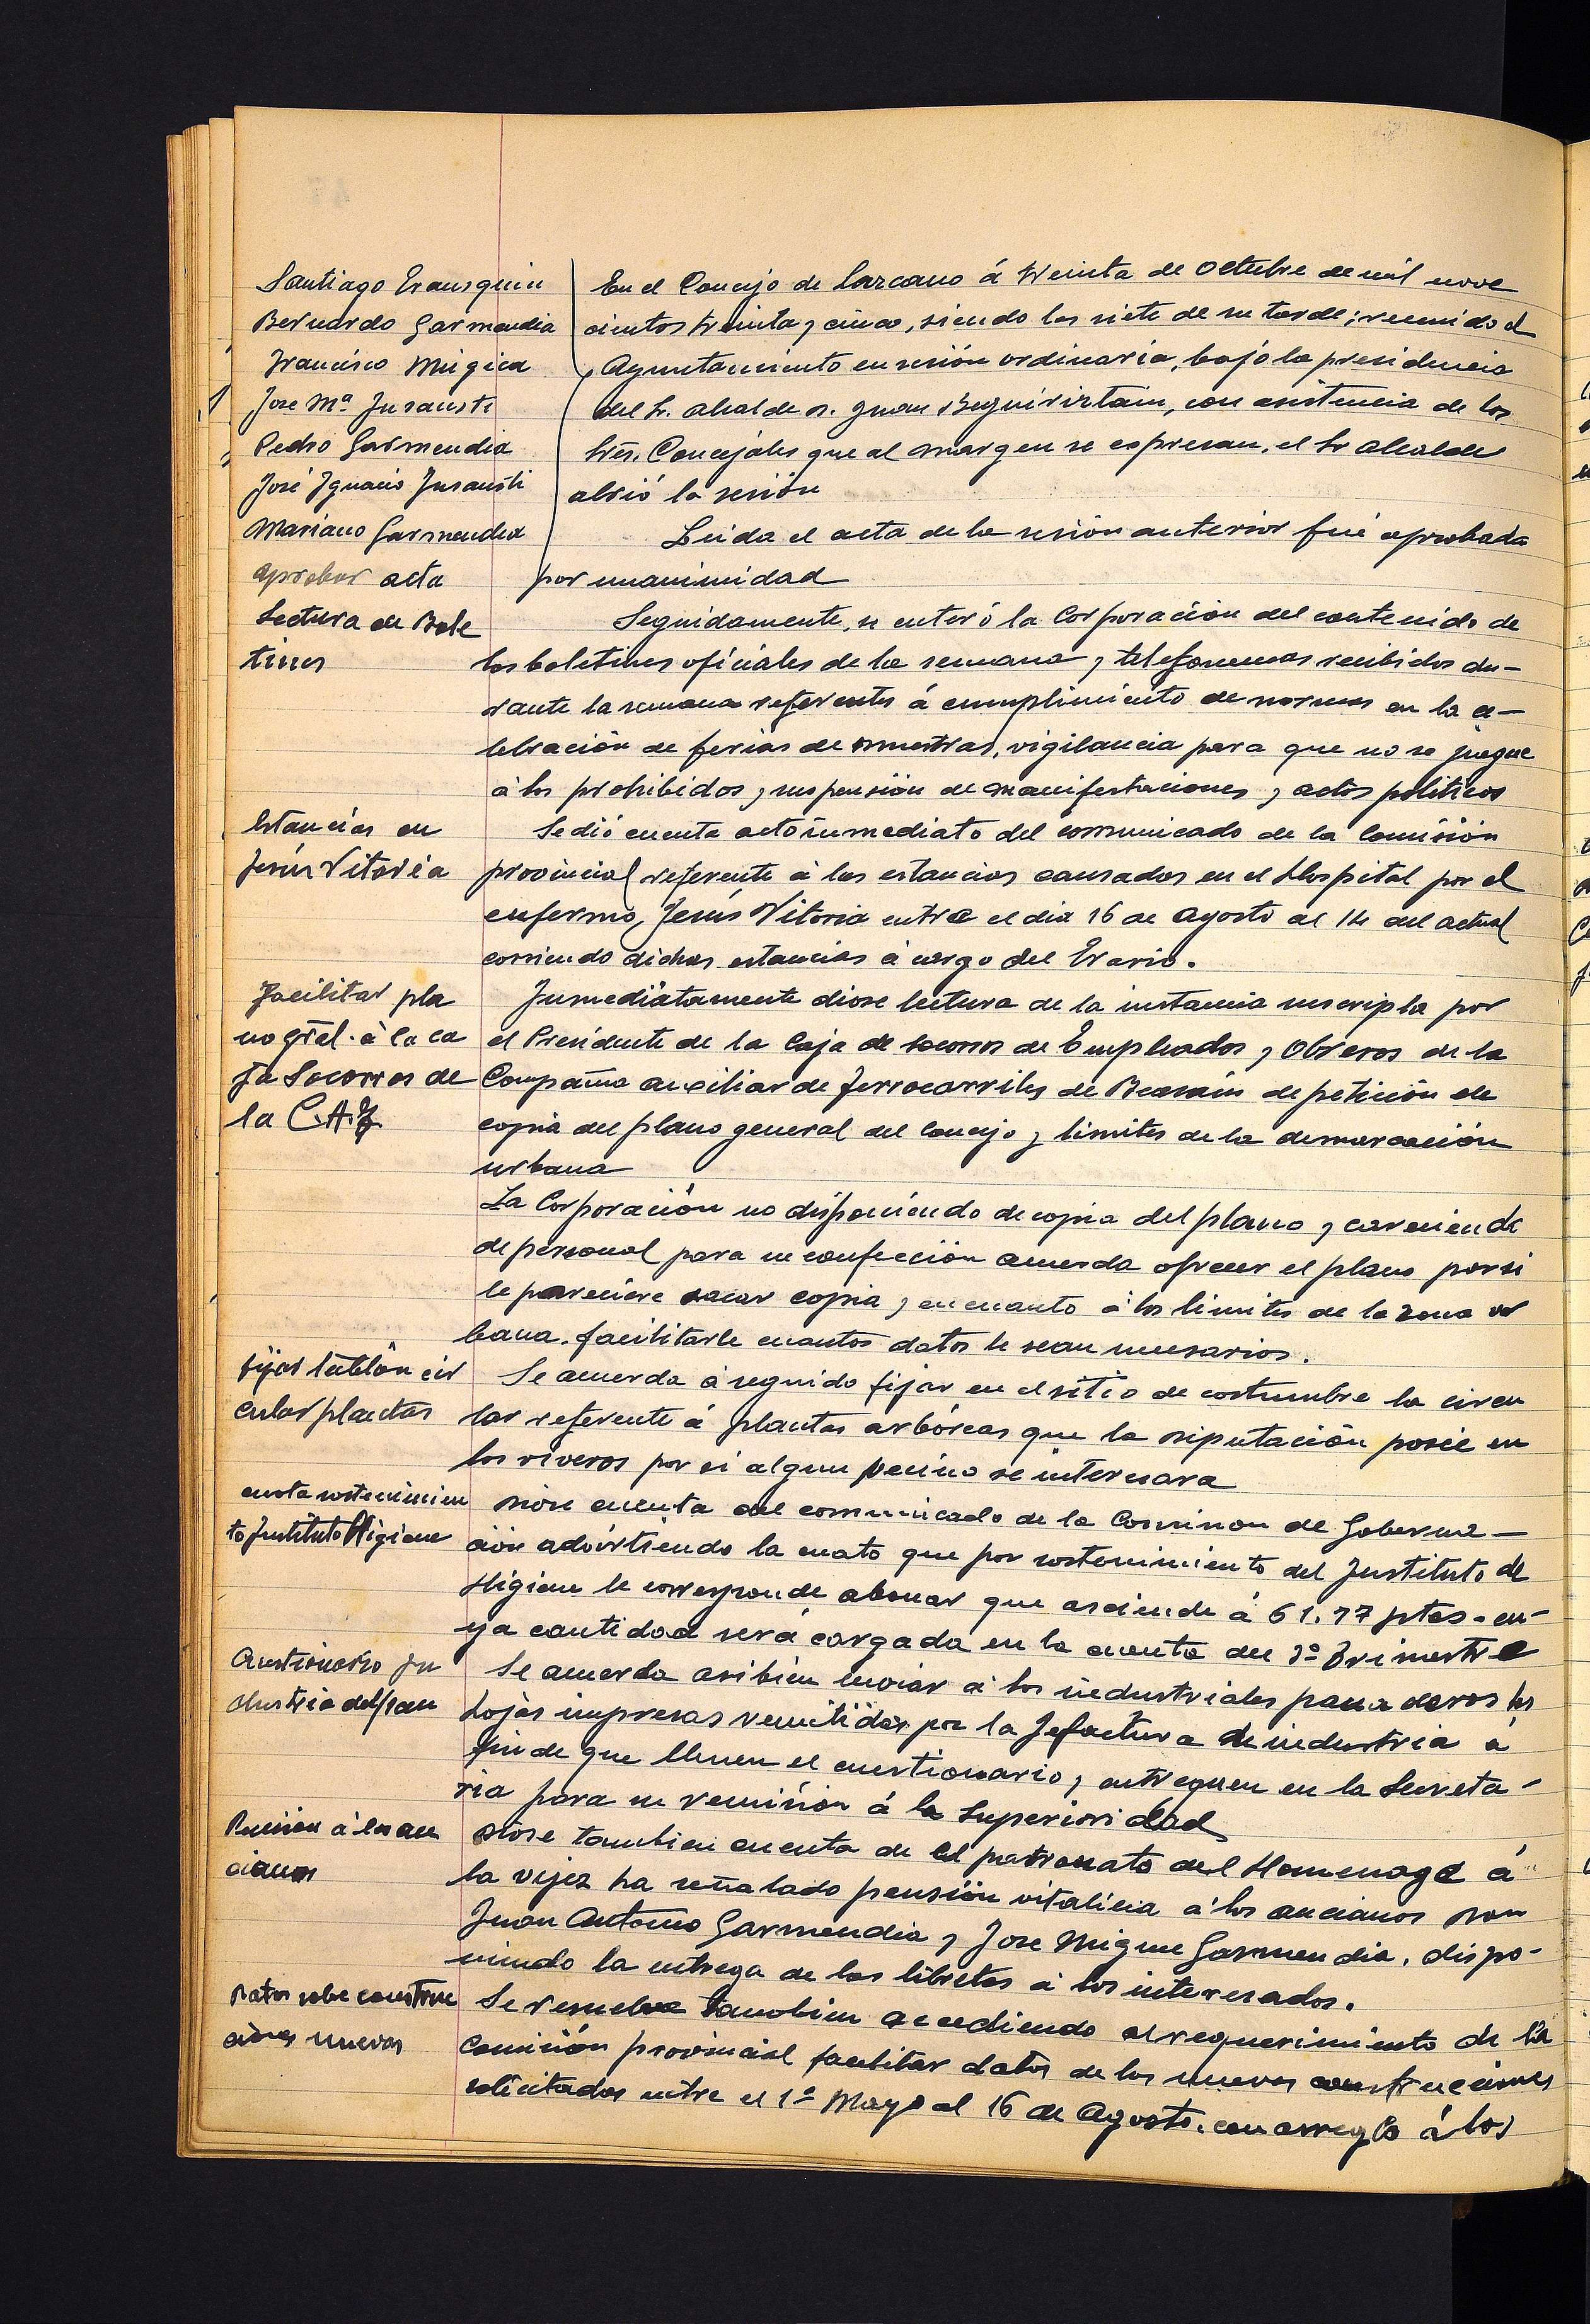 Santiago Erausquin
Bernardo Garmendia
Francisco Múgica
Jose Mª Insausti
Pedro Garmendia
José Ignacio Insausti
Mariano Garmendia
En el Concejo de Lazcano á treinta de Octubre de mil nove
cientos treinta y cinco, siendo las siete de su tarde; reunido el
Ayuntamiento en sesión ordinaria, bajo la presidencia
del Sr. Alcalde D. Juan Beguiristain, con asistencia de los
Sres. Concejales que al margen se expresan, el Sr Alcalde
abrió la sesión
aprobar acta
Leida el acta de la sesión anterior fué aprobada
por unanimidad
Lectura de Bole
tines
Seguidamente, se enteró la Corporación del contenido de
los boletines oficiales de la semana y telefonemas recibidos du-
rante la semana referentes á cumplimiento de normas en la ce-
lebración de ferias de muestras, vigilancia para que no se juegue
á los prohibidos y suspensión de manifestaciones y actos politicos
Estancias en
Jesús Vitoria
Se dió cuenta acto inmediato del comunicado de la Comisión
provincial referente á las estancias causadas en el Hospital por el
enfermo, Jesús Vitoria entre el dia 16 de Agosto al 14 del actual
corriendo dichas estancias á cargo del Erario.
Facilitar pla
no gral. á la ca
ja Socorros de
la C.A.F
Inmediatamente diose lectura de la instancia suscripta por
el Presidente de la Caja de socorros de Empleados y Obreros de la
Compañia auxiliar de Ferrocarriles de Beasain de petición de
copia del plano general del Concejo y limites de la demarcación
urbana
La Corporación no disponiendo de copia del plano y careciendo
de personal para su confección acuerda ofrecer el plano por si
le pareciere sacar copia y en cuanto á los limites de la zona ur
bana. facilitarle cuantos datos le sean necesarios.
fijar tablón cir
cular plantas
Se acuerda á seguido fijar en el sitio de costumbre la circu
lar referente á plantas arbóreas que la Diputación poseé en
los viveros por si algun vecino se interesara
cuota sostenimien
to Instituto Higiene
Diose cuenta del comunicado de la Comision de Goberna-
ción advirtiendo la cuota que por sostenimiento del Instituto de
Higiene le corresponde abonar que asciende á 61.77 ptas. cu-
ya cantidad será cargada en la cuenta del 3º Trimestre
Cuestionario In
dustria del pan
Se acuerda asi bien enviar á los industriales panaderos las
hojas impresas remitidas por la Jefactura de industria á
fin de que llenen el cuestionario y entreguen en la Secreta-
ria para su remisión á la Superioridad
Pensión á los an
cianos
Diose tambien cuenta de el patronato del Homenage á
la vejez ha señalado pensión vitalicia á los ancianos Don
Juan Antonio Garmendia y Jose Miguel Garmendia, dispo-
niendo la entrega de las libretas á los interesados.
Datos sobre construc
ciones nuevas
Se resuelve tambien accediendo al requerimiento de la
Comisión provincial facilitar datos de las nuevas construcciones
solicitadas entre el 1º Mayo al 16 de Agosto. con arreglo á los